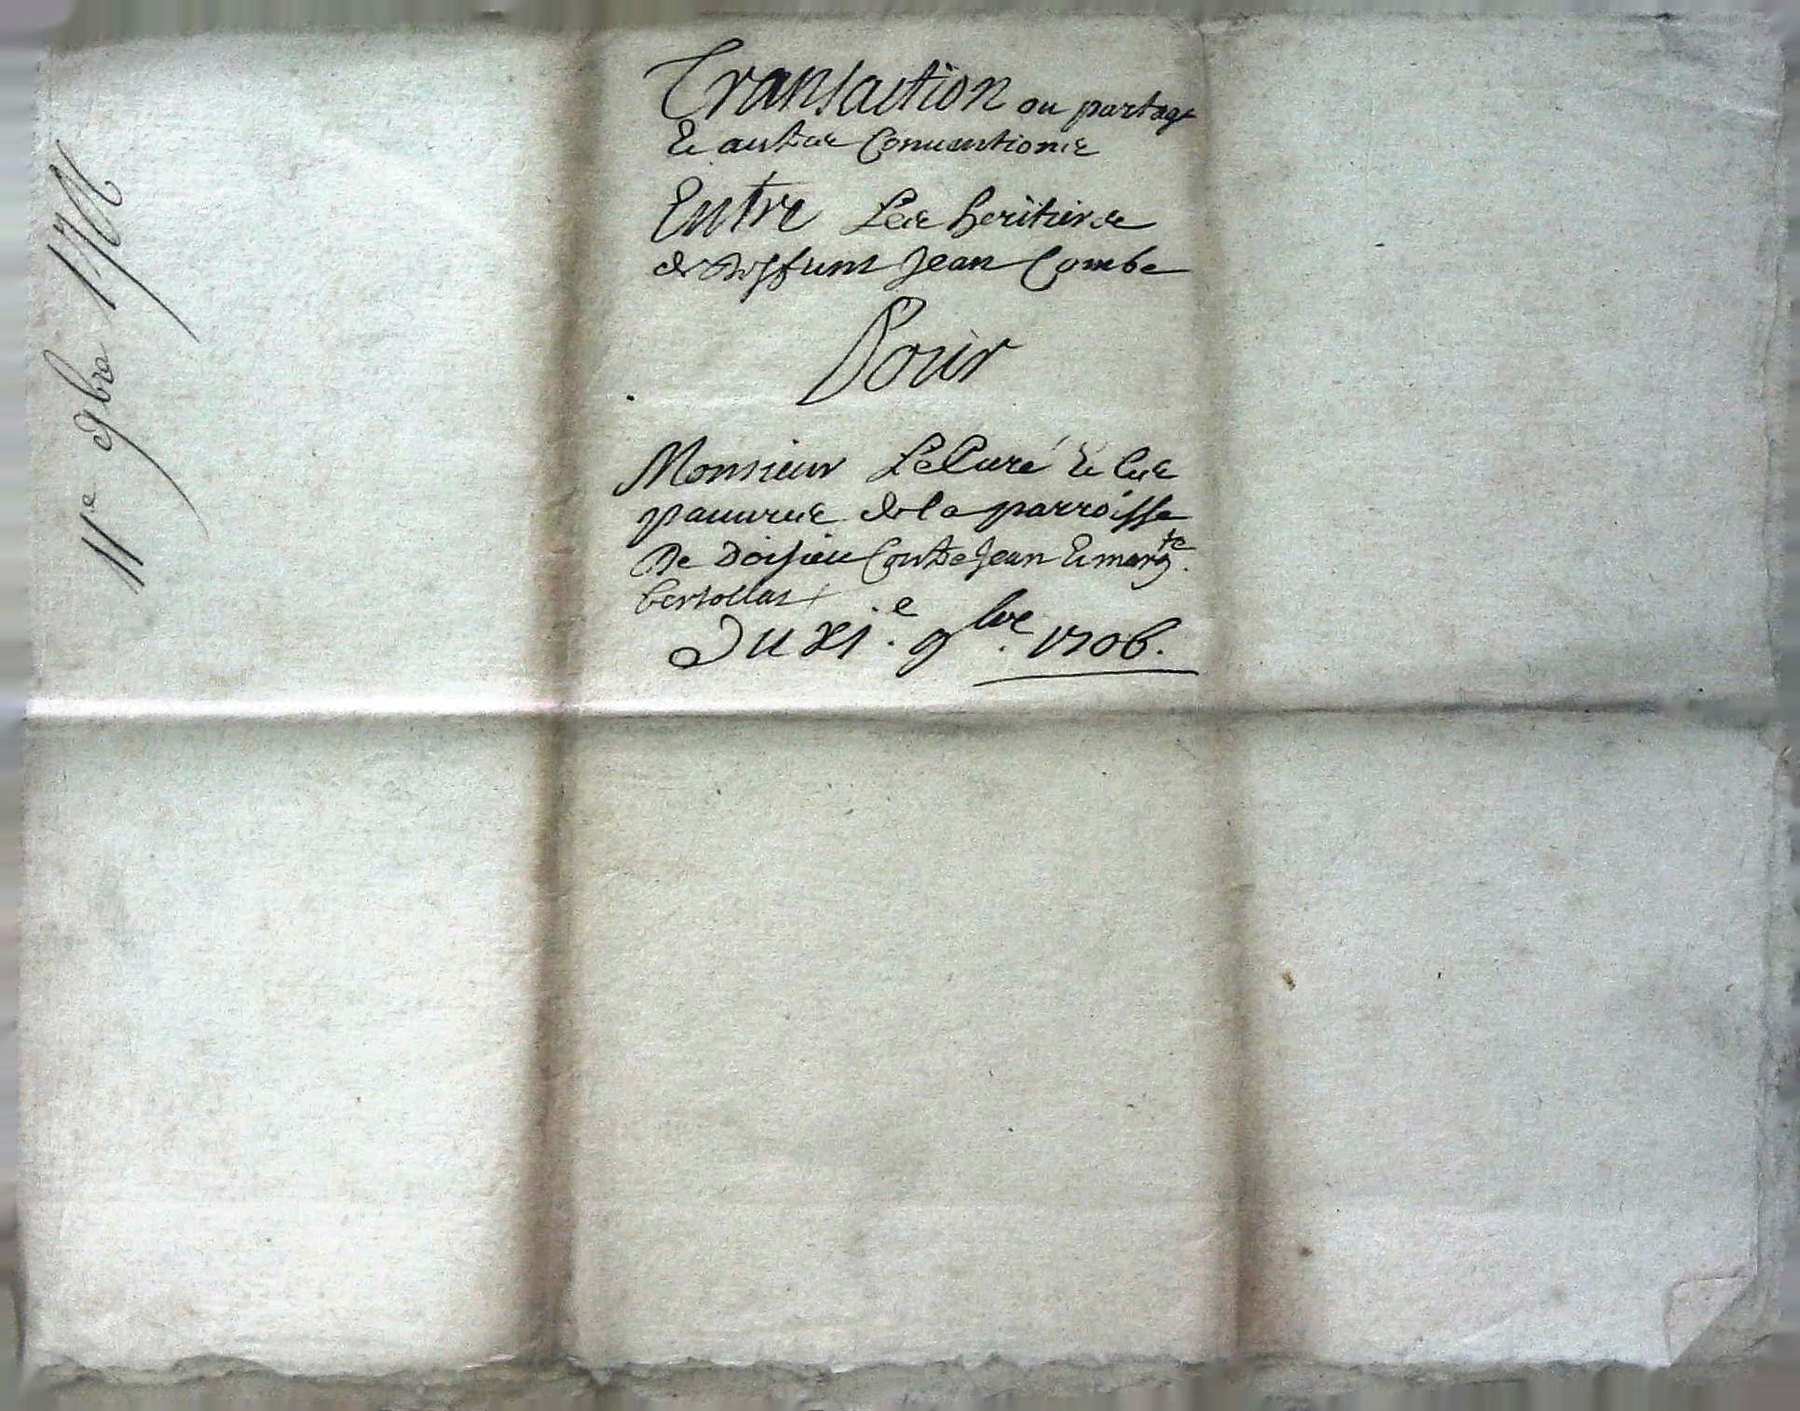 Transaction ou partage
Et autres Conventions
Entre Les heritiers
de deffunt Jean Combe
Pour
Monsieur Le Curé Et les
pauvres de la parroisse
De Doisieu Contre Jean Et marg.te
bertollat
Du XI.e 9.bre 1706.
11e 9bre